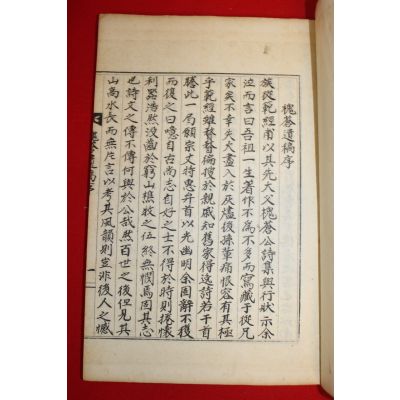 槐菴遺稿序
族從範經甫以其先大父槐菴公詩集與行狀示余
泣而言曰吾祖一生著作不爲不多而寫藏于從兄
家矣不幸失火盡入於灰燼後孫輩痛恨容有其極
乎範經雖瞽瞽徧搜於親戚知舊家得逸詩若干首
謄此一局願宗丈特惠弁首以光幽明余固辭不獲
而復之曰噫自古尚志自好之士不得於時則捲懷
利器浩然沒齒於窮山樵牧之伍終無憫焉固其志
也詩文之傳不傳何與於公哉然百世之後但見其
山高水長而無片言以考其風韻則豈非後人之憾